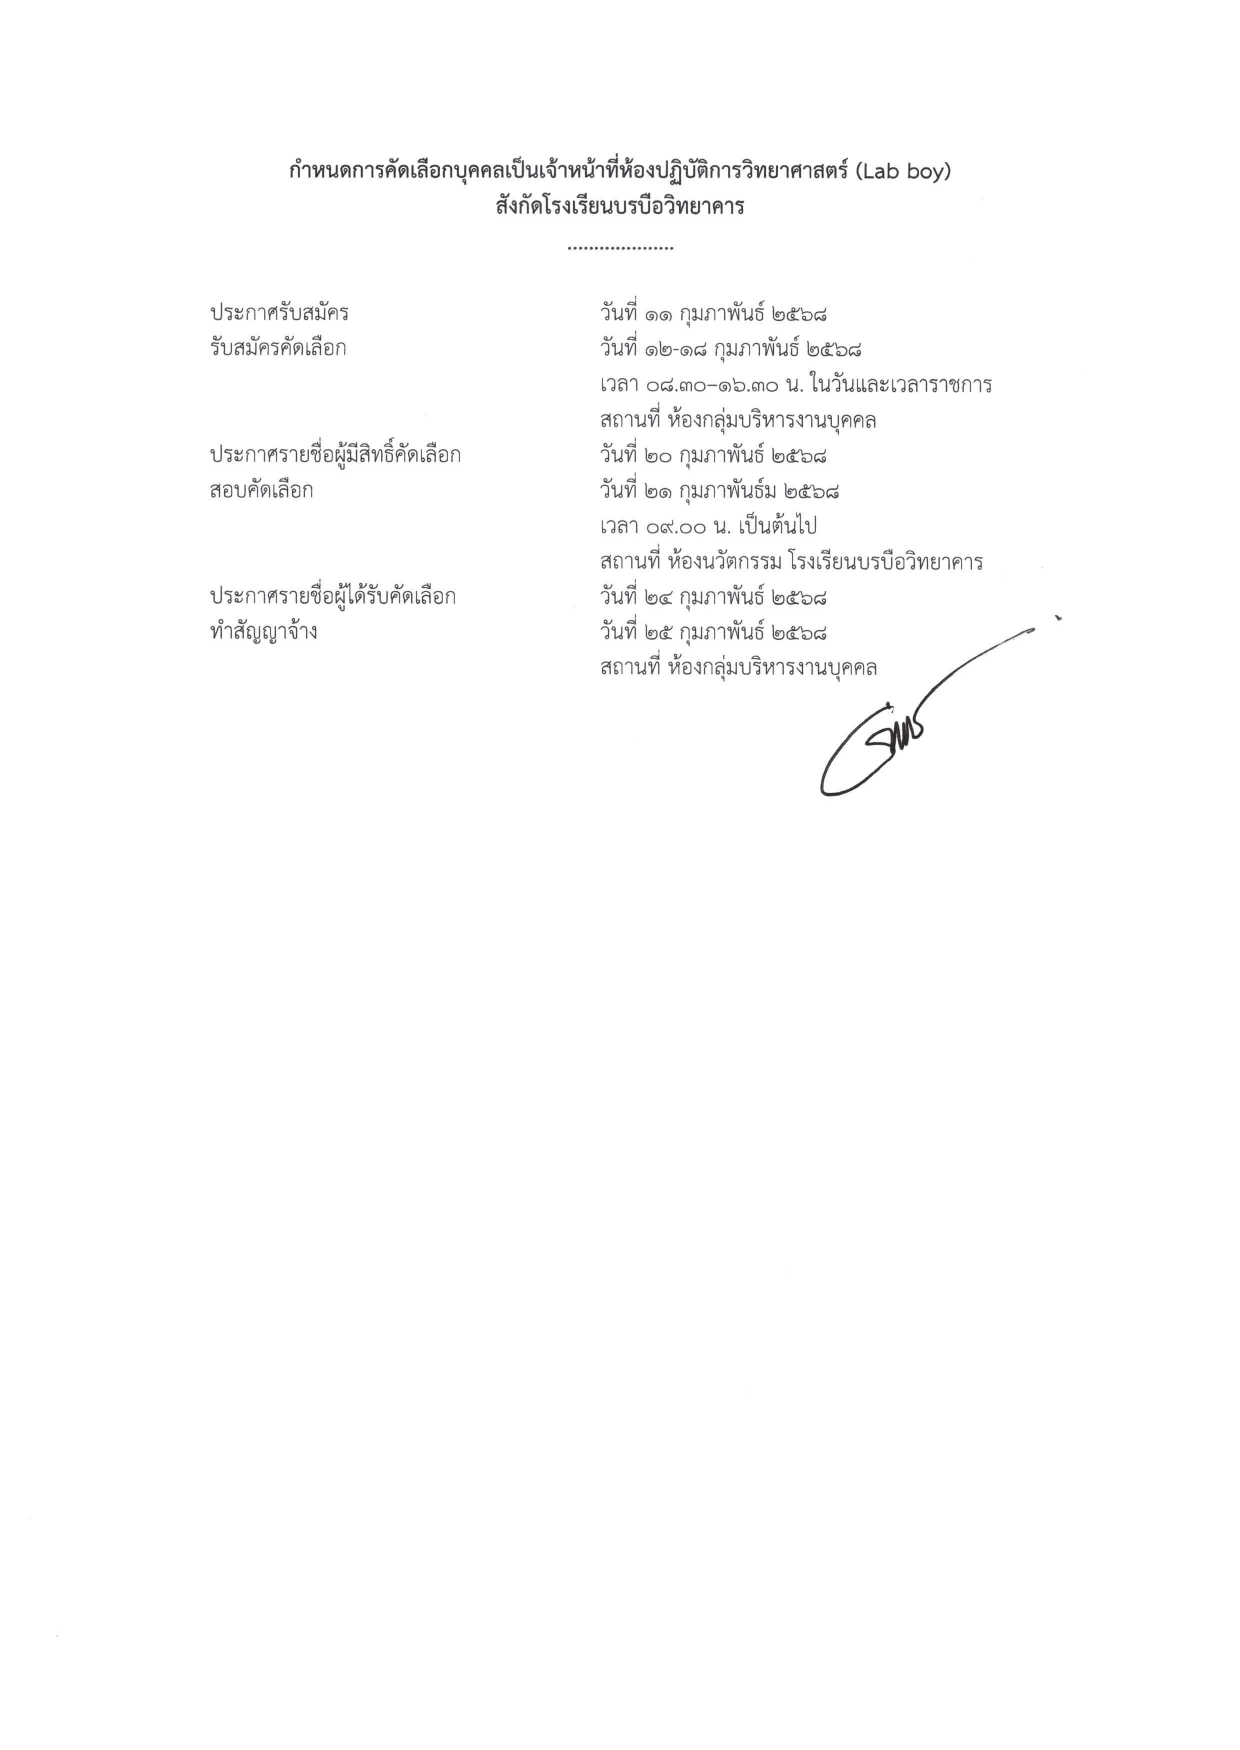 กำหนดการคัดเลือกบุคคลเป็นเจ้าหน้าที่ห้องปฏิบัติการวิทยาศาสตร์ (Lab boy)
สังกัดโรงเรียนบรบือวิทยาคาร
....................
ประกาศรับสมัคร วันที่ ๑๑ กุมภาพันธ์ ๒๕๖๘
รับสมัครคัดเลือก วันที่ ๑๒-๑๘ กุมภาพันธ์ ๒๕๖๘
เวลา ๐๘.๓๐–๑๖.๓๐ น. ในวันและเวลาราชการ
สถานที่ ห้องกลุ่มบริหารงานบุคคล
ประกาศรายชื่อผู้มีสิทธิ์คัดเลือก วันที่ ๒๐ กุมภาพันธ์ ๒๕๖๘
สอบคัดเลือก วันที่ ๒๑ กุมภาพันธ์ม ๒๕๖๘
เวลา ๐๙.๐๐ น. เป็นต้นไป
สถานที่ ห้องนวัตกรรม โรงเรียนบรบือวิทยาคาร
ประกาศรายชื่อผู้ได้รับคัดเลือก วันที่ ๒๔ กุมภาพันธ์ ๒๕๖๘
ทำสัญญาจ้าง วันที่ ๒๕ กุมภาพันธ์ ๒๕๖๘
สถานที่ ห้องกลุ่มบริหารงานบุคคล